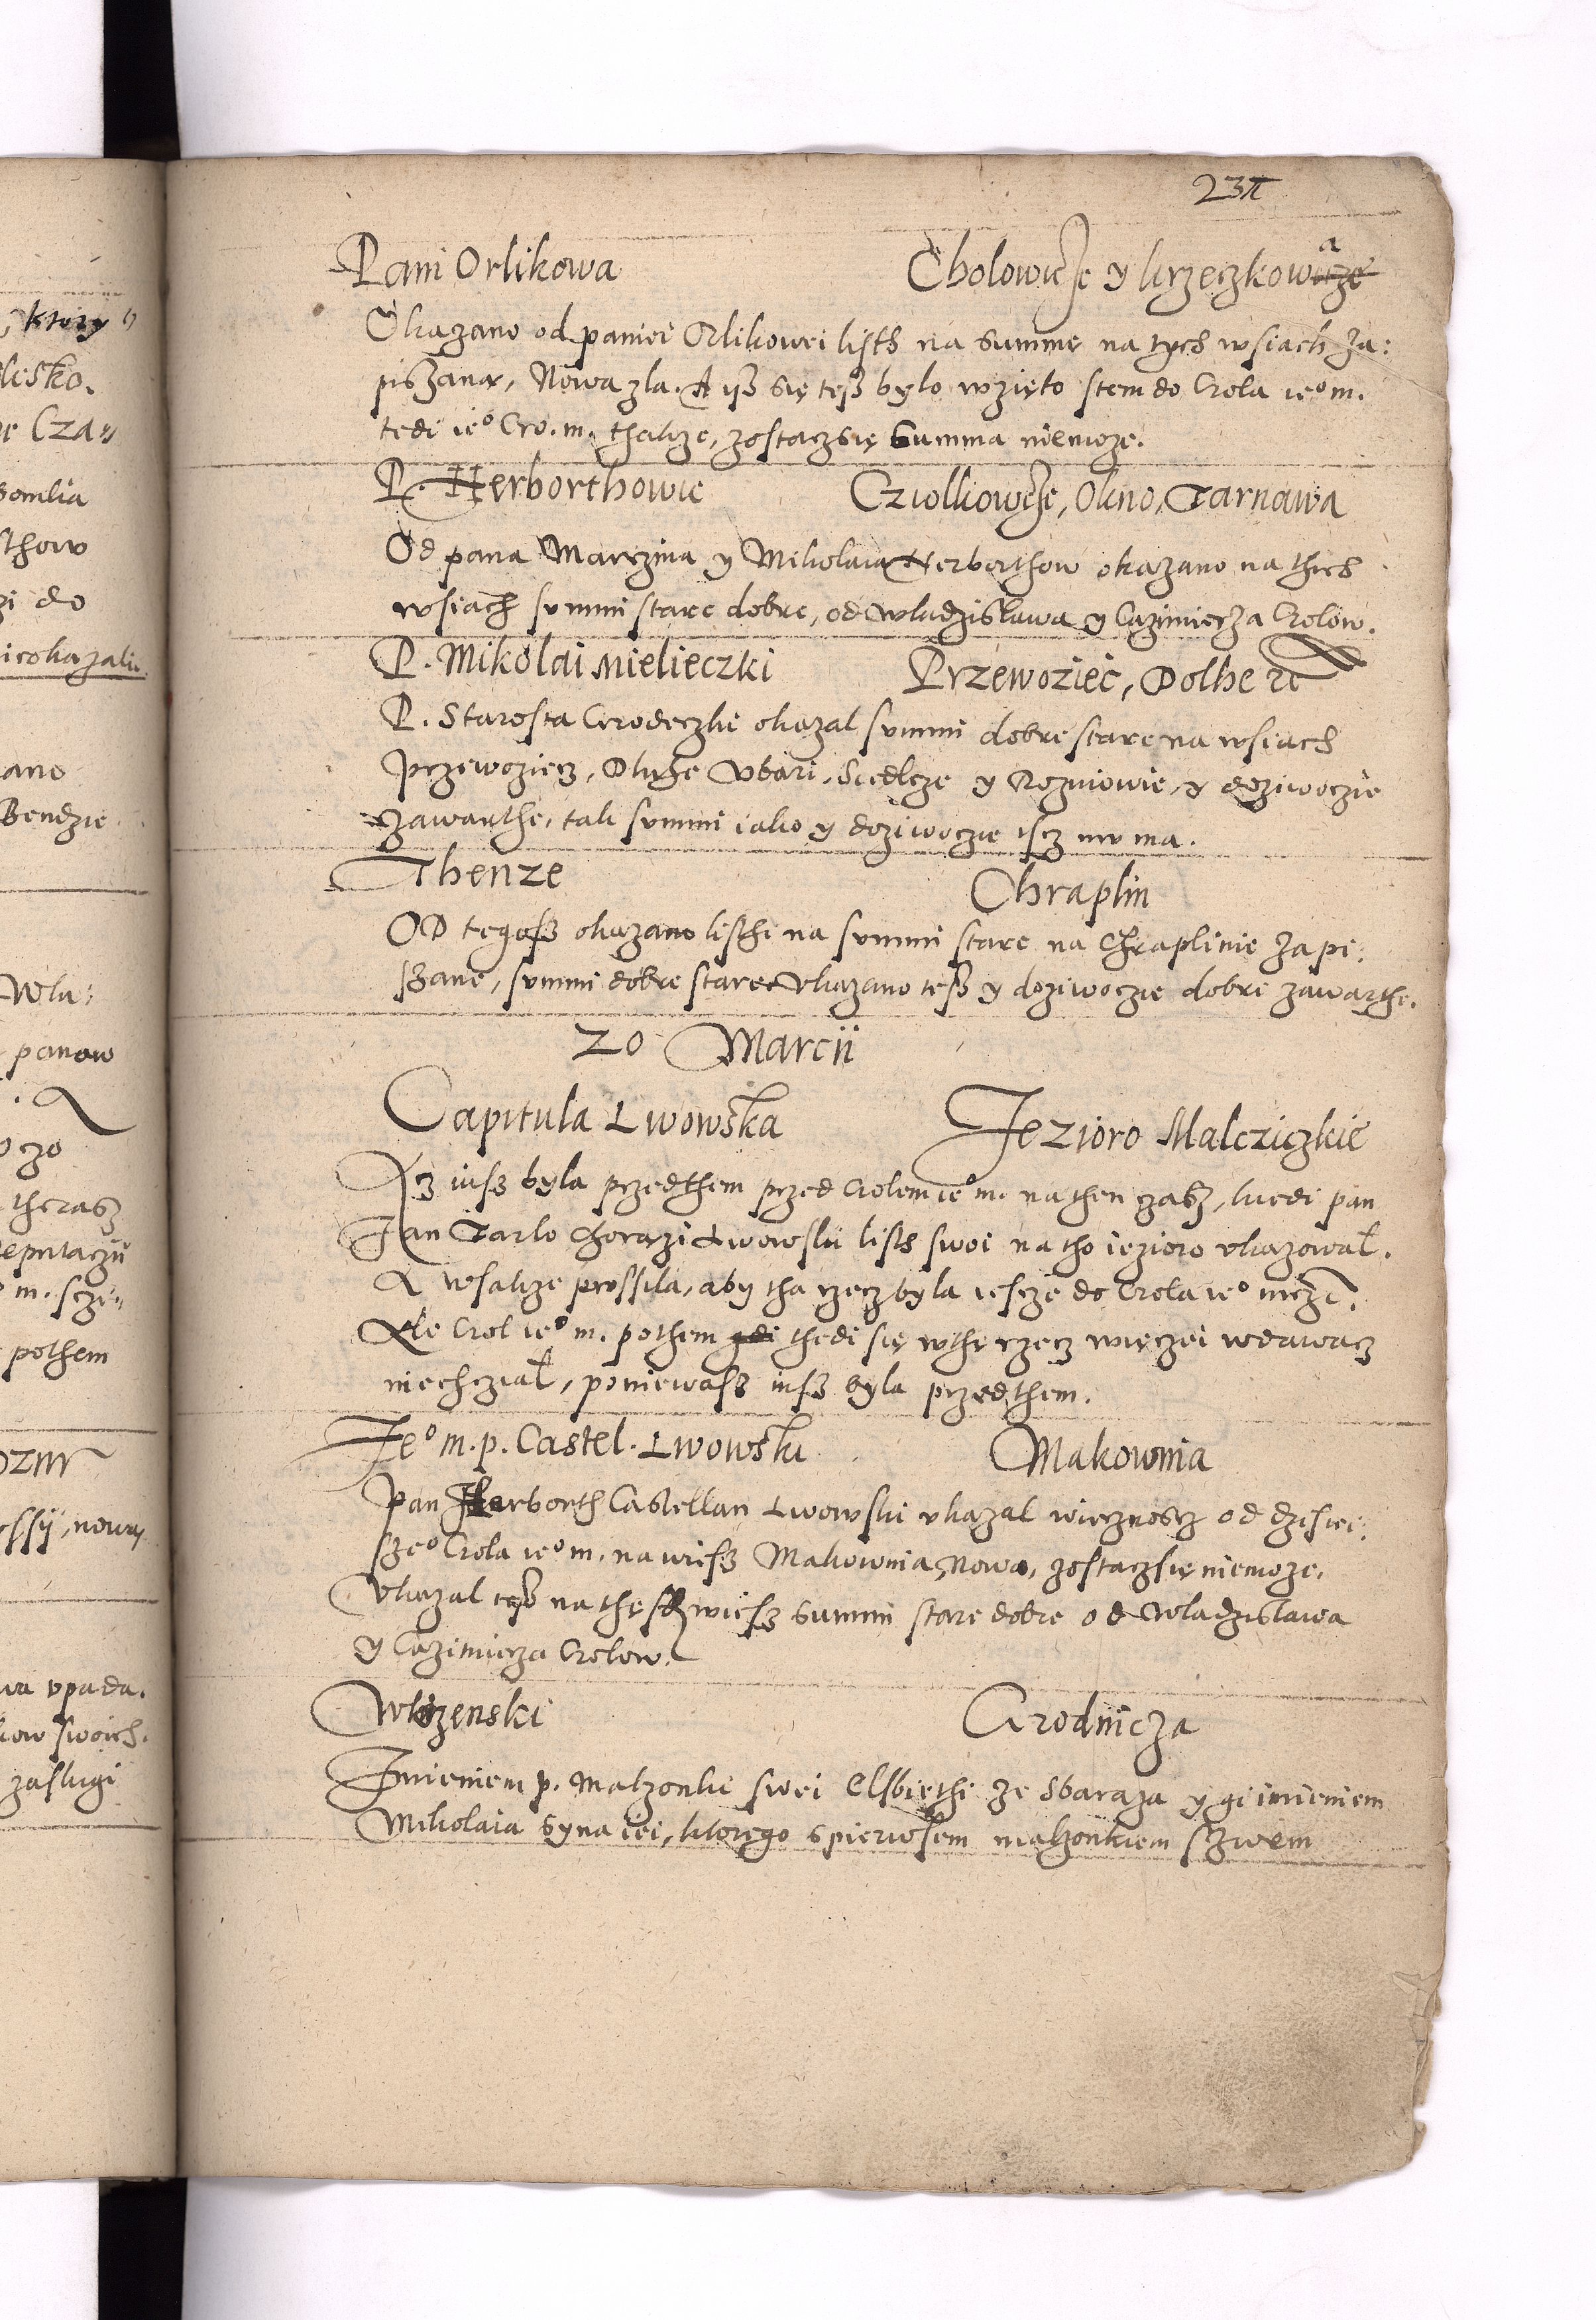 237
Pani Orlikowa Cholowicze y Krzeczkowa
Okazano od paniei Orlikowei listh na summę na tych wsiach za:
piszaną, Nowa zla. A isz się tesz bylo wzięto s tem do Crola ieº m.
tedi ieº Cro. m. thakze, zostacz się summa niemoze.
P. Herborthowie Cziolkowicze, Okno, Tarnawa
Od pana Marczina y Mikolaia Herborthow okazano na thich
wsiach summi stare dobre, od Wladzislawa y Cazimierza Crolow.
P. Mikolai Mielieczki Przewoziec, Dolhe etc
P. Starosta Grodeczki okazal summi dobre stare na wsiach
Przewoziecz, Dluhe Ubari, Siedlcze y Rozniowie, y doziwoczie
zawarthe, tak summi iako y doziwoczie
Thenze Chraplin
Od tegosz okazano listhi na summi stare na Chraplinie zapi:
szane, summi dobre stare Ukazano tesz y doziwoczie dobre zawarthe.
20 Marcii
Capitula Lwowska Jezioro Malcziczkie
Acz iusz byla przedthem przed Crolem ieº m. na then czasz, kiedi pan
Jan Tarlo Chorązi Lwowski listh swoi na tho iezioro ukazowal.
A wsakze prossila, aby tha rzecz byla iescze do Crola ieº
Ale Crol ieº m. pothem gdi thedi się w thę rzecz więczei wdawacz
niechczial, poniewasz iusz byla przedthem.
Jeº m. p. Castel. Lwowski Makownia
Pan Herborth Castellan Lwowski ukazal wiecznoscz od dzisiei:
szeº Crola ieº m. na wiesz Makownia, Nowa, zostacz się niemoze.
Ukazal tesz na thęsz wiesz summi stare dobre od Wladzislawa
y Cazimierza Crolow.
Grodnicza
Imieniem p. Malzonki swei Elsbiethi ze Sbaraza y gi imieniem
Mikolaia syna iei, ktorego s pierwsem malzonkiem szwem